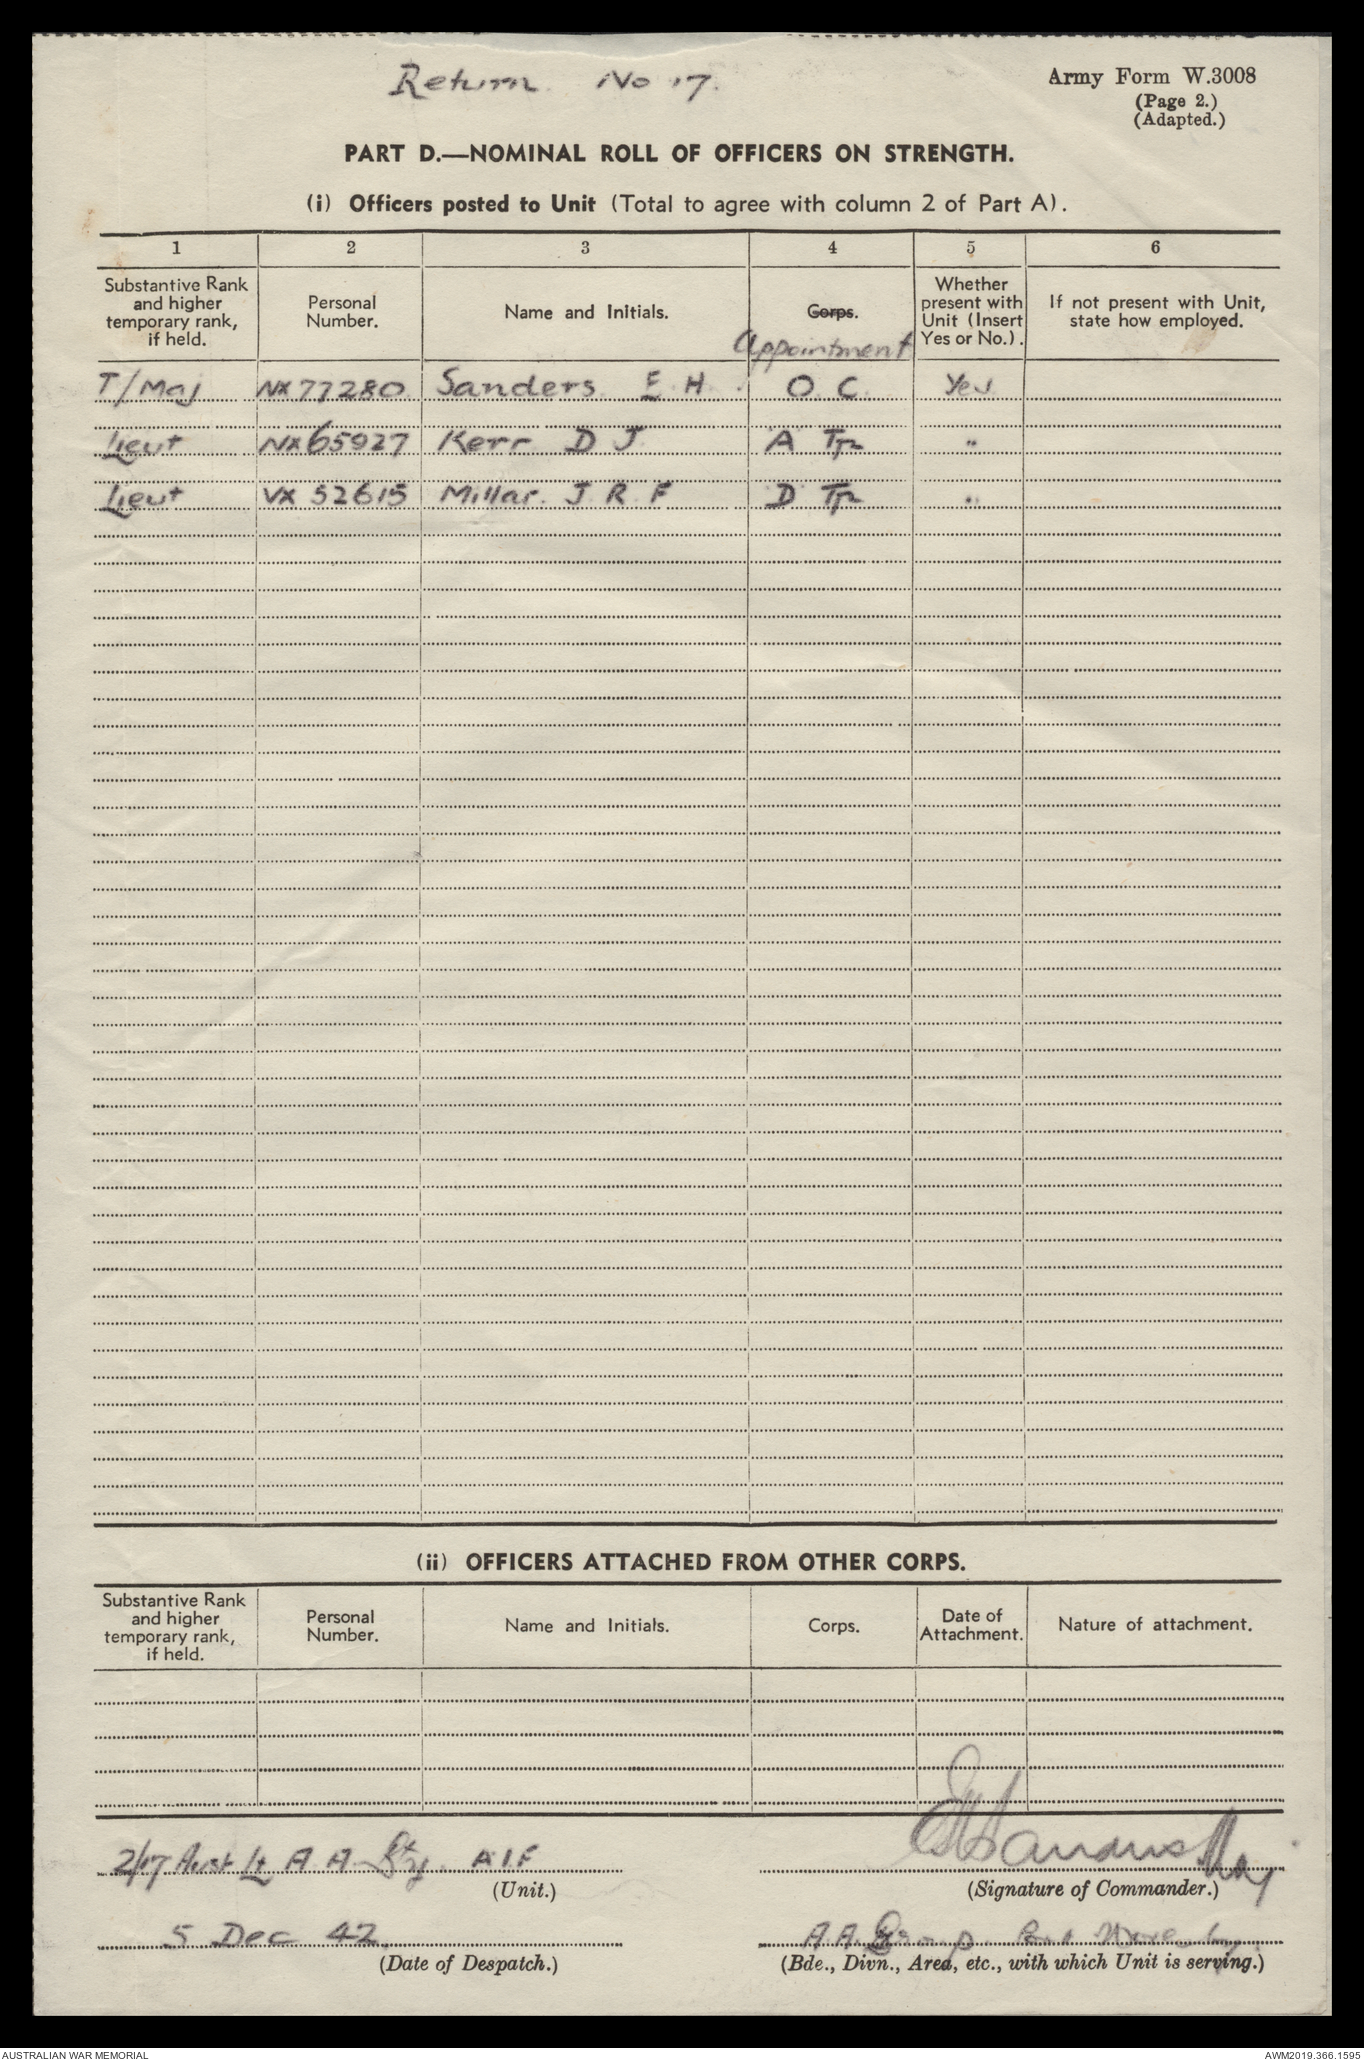 Return No 17.
Army Form W.3008
(Page 2.)
(Adapted.)
PART D.—NOMINAL ROLL OF OFFICERS ON STRENGTH.
(i) Officers posted to Unit (Total to agree with column 2 of Part A).
1 2 3 4 5 6
Substantive Rank and higher temporary rank, if held. Personal Number. Name and Initials. Corps. Appointment Whether present with Unit (Insert Yes or No.). If not present with Unit, state how employed.
T/Maj NX77280 Sanders E H. O. C. Yes
Lieut NX65927 Kerr D J A Tp "
Lieut VX 52615 Millar J R F D Tp "
(ii) OFFICERS ATTACHED FROM OTHER CORPS.
Substantive Rank and higher temporary rank, if held. Personal Number. Name and Initials. Corps. Date of Attachment. Nature of attachment.
2/17 Aust Lt A A Bty A I F
EHSanders Maj
(Unit.)
(Signature of Commander.)
5 Dec 42
A.A. Group Port Moresby.
(Date of Despatch.)
(Bde., Divn., Area, etc., with which Unit is serving.)
AUSTRALIAN WAR MEMORIAL
AWM2019.366.1595